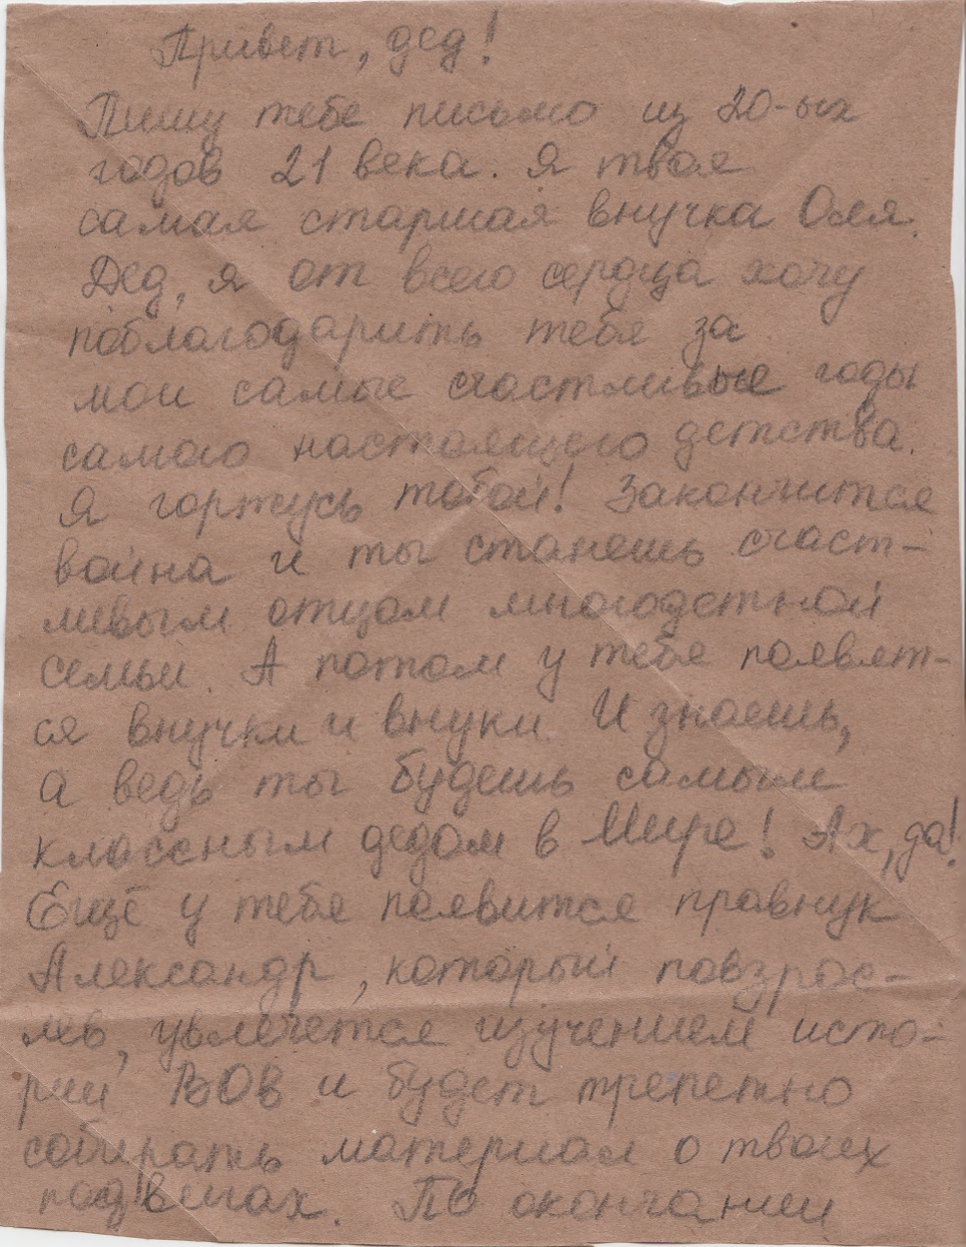 Привет, дед!
Пишу тебе письмо из 20-ых
годов 21 века. Я твоя
самая старшая внучка Оля.
Дед, я от всего сердца хочу
поблагодарить тебя за
мои самые счастливые годы
самого настоящего детства.
Я горжусь тобой! Закончится
война и ты станешь счаст-
ливым отцом многодетной
семьи. А потом у тебя появят-
ся внучки и внуки. И знаешь,
а ведь ты будешь самым
классным дедом в Мире! Ах, да!
Ещё у тебя появится правнук
Александр, который повзрос-
лев, увлечется изучением исто-
рии ВОВ и будет трепетно
собирать материал о твоих
подвигах. По окончании